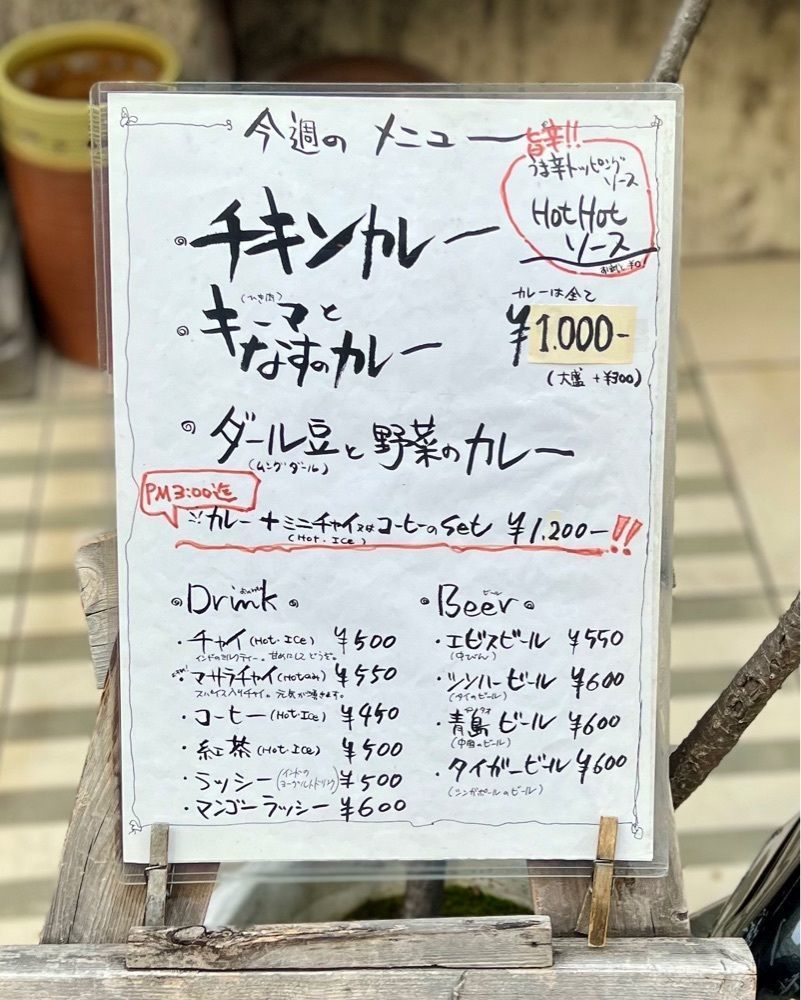 今週の メニュー
旨辛!!
うま辛トッピング
ソース
HotHot
ソース
チキンカレー
(ひき肉)
キーマと
なすのカレー
カレーは全て
¥1.000-
(大盛 +¥300)
ダール豆と野菜のカレー
(ムングダール)
PM3:00迄
カレー+ミニチャイ又はコーヒーのset ¥1.200-!!
(Hot・Ice)
Drink
・チャイ(Hot・Ice) ¥500
インドのミルクティー。甘めにしてどうぞ。
・マサラチャイ(Hotのみ) ¥550
スパイス入りチャイ。元気が湧きます。
・コーヒー(Hot・Ice) ¥450
・紅茶(Hot・Ice) ¥500
・ラッシー(インドのヨーグルトドリンク) ¥500
・マンゴーラッシー ¥600
ビール
Beer
・エビスビール ¥550
(中びん)
・シンハービール ¥600
(タイのビール)
チンタオ
・青島ビール ¥600
(中国のビール)
・タイガービール ¥600
(シンガポールのビール)